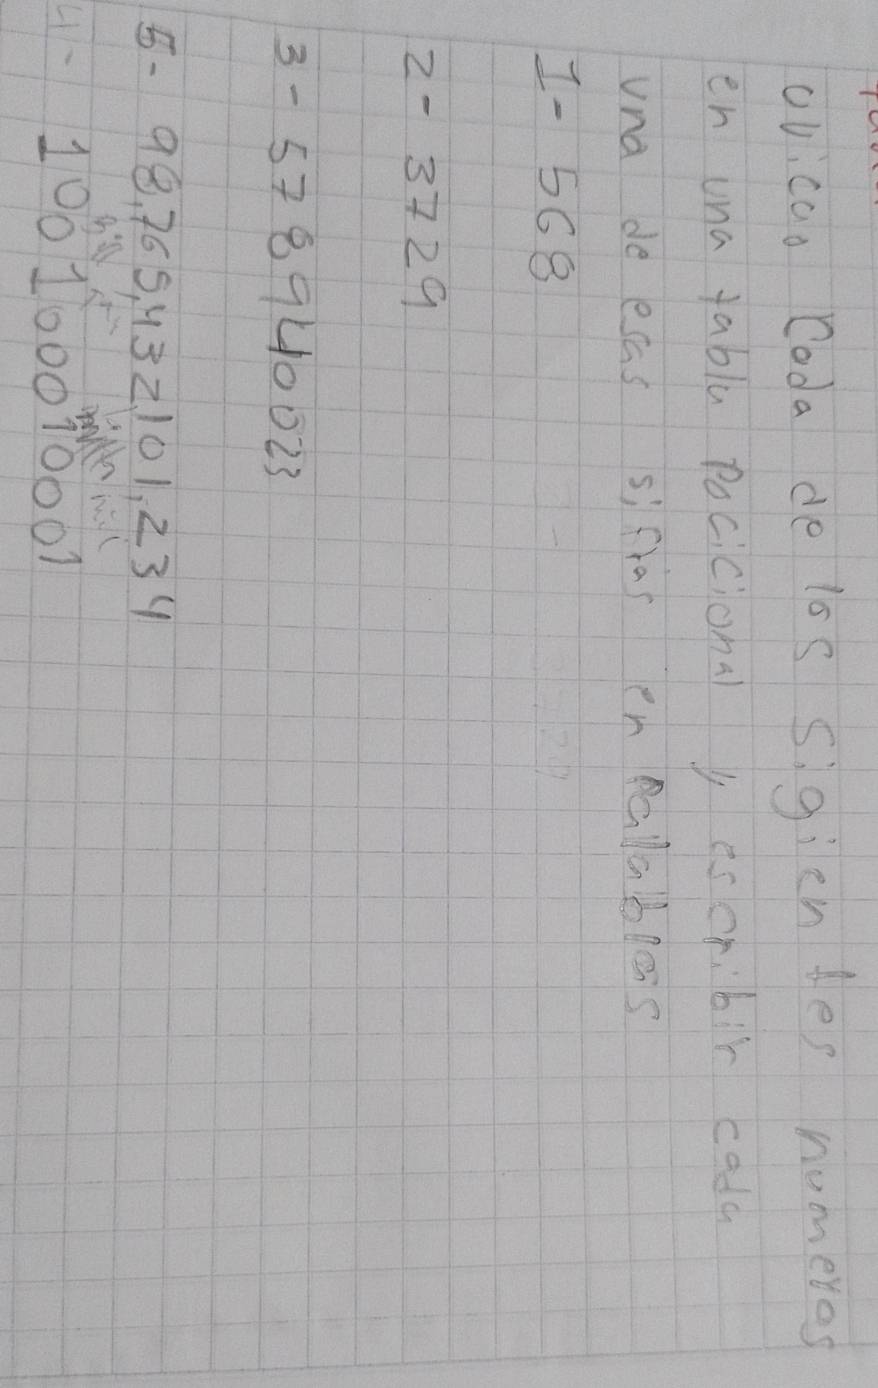 ubicar cada de los sigientes numeros
en una tabla pocicional y escribir cada
una de esas sifras en pallablas
1- 568
2- 3729
3- 578940023
5- 98,765,432101,234
4- 100100010001